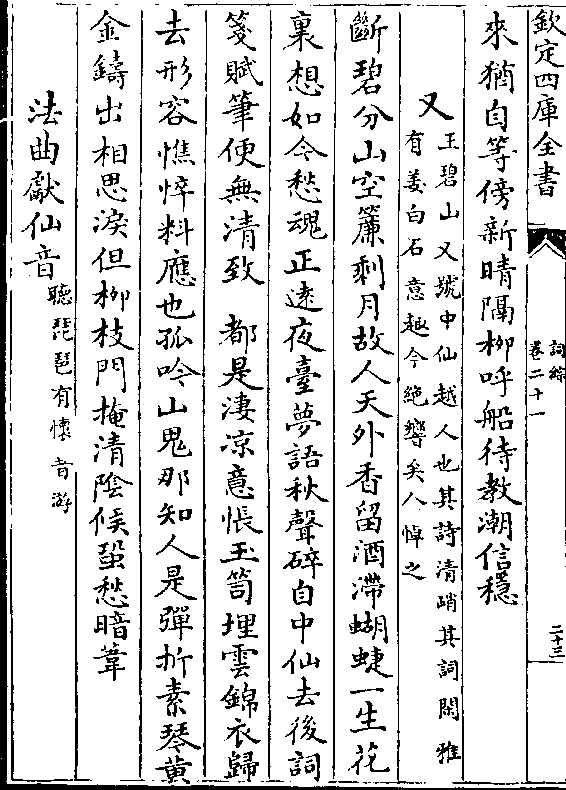 欽定四庫全書
詞綜
卷二十一
二十三
來猶自等傍新晴隔柳呼船待教潮信穩
又
王碧山又號中仙越人也其詩清峭其詞閑雅
有姜白石意趣今絶響矣人悼之
斷碧分山空簾剩月故人天外香留酒滯蝴蝶一生花
裏想如今愁魂正逺夜臺夢語秋聲碎自中仙去後詞
箋賦筆便無清致 都是淒凉意悵玉笥埋雲錦衣歸
去形容憔悴料應也孤吟山鬼那知人是彈折素琴黄
金鑄出相思淚但柳枝門掩清陰候蛩愁暗葦
法曲獻仙音
聽琵琶有懷昔游